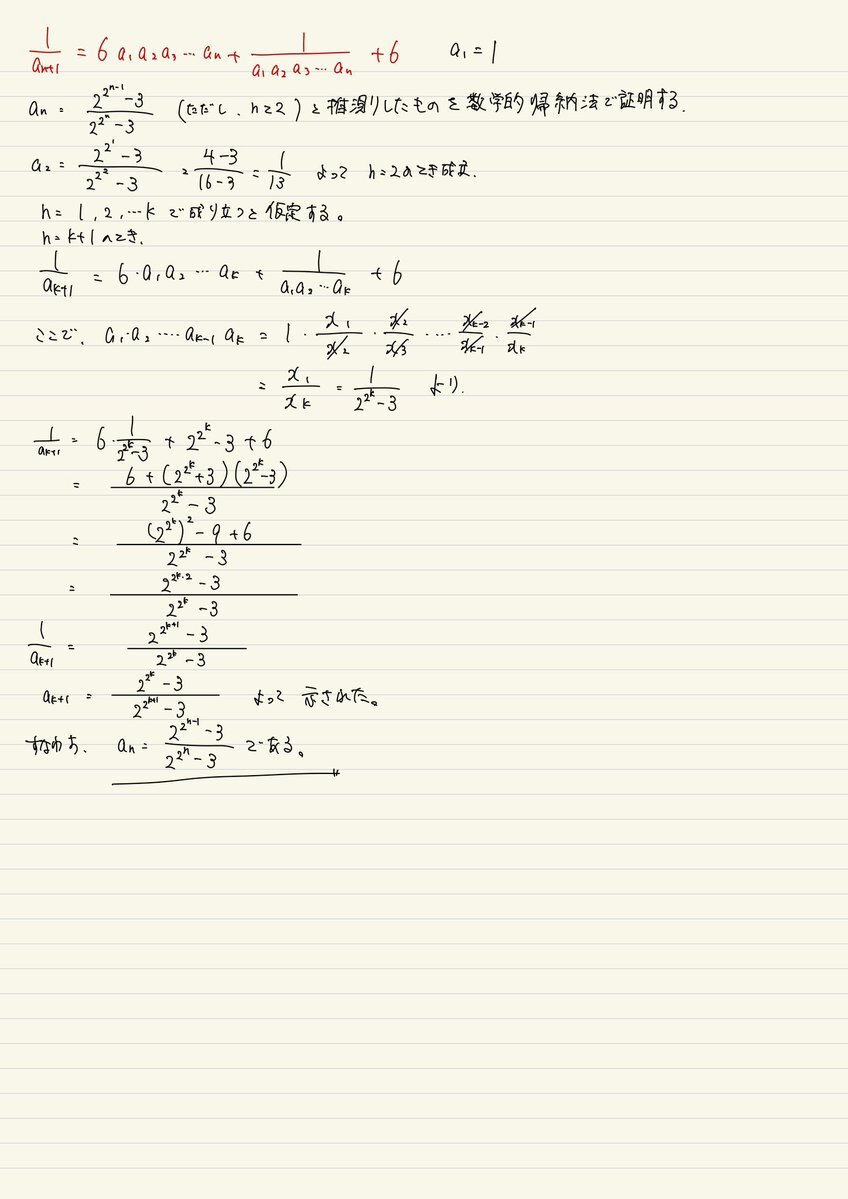 1/a_{n+1} = 6 a₁ a₂ a₃ … a_n + 1/(a₁ a₂ a₃ … a_n) + 6   a₁ = 1
a_n = (2^{2^{n-1}} - 3)/(2^{2^n} - 3) (ただし、n≧2)と推測したものを数学的帰納法で証明する.
a₂ = (2^{2^1} - 3)/(2^{2^2} - 3) = (4-3)/(16-3) = 1/13 よって n=2のとき成立.
n = 1, 2, … k で成り立つと仮定する。
n = k+1 のとき、
1/a_{k+1} = 6・a₁ a₂ … a_k + 1/(a₁ a₂ … a_k) + 6
ここで、a₁・a₂ …… a_{k-1} a_k = 1・x₁/x₂・x₂/x₃・…・x_{k-2}/x_{k-1}・x_{k-1}/x_k
= x₁/x_k = 1/(2^{2^k} - 3) より.
1/a_{k+1} = 6・1/(2^{2^k} - 3) + 2^{2^k} - 3 + 6
= (6 + (2^{2^k} + 3)(2^{2^k} - 3))/(2^{2^k} - 3)
= ((2^{2^k})^2 - 9 + 6)/(2^{2^k} - 3)
= (2^{2^k・2} - 3)/(2^{2^k} - 3)
1/a_{k+1} = (2^{2^{k+1}} - 3)/(2^{2^k} - 3)
a_{k+1} = (2^{2^k} - 3)/(2^{2^{k+1}} - 3) よって 示された。
すなわち、a_n = (2^{2^{n-1}} - 3)/(2^{2^n} - 3) である。